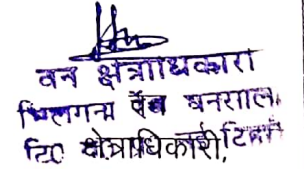 वन क्षेत्राधिकारी
भिलंगना रेंज घनसाली
टि० क्षेत्राधिकारी,